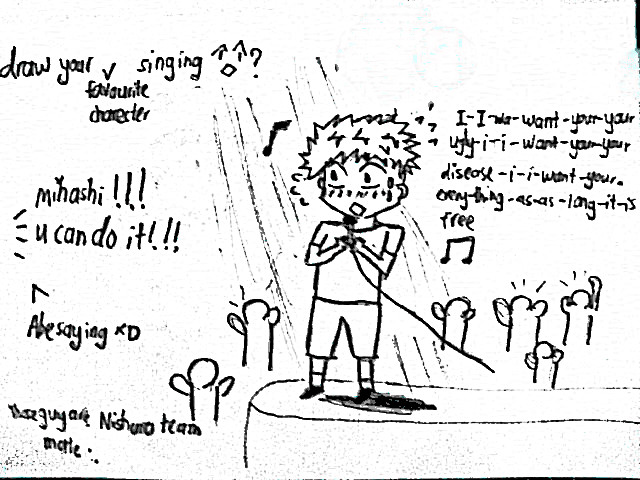 draw your singing ?
favourite
character
I-I-wa-want-your-your
ugly-i-i-want-your-your
disease-i-i-want-your-
everything-as-as-long-it-is
free
mihashi !!!
u can do it!!!
Abe saying xD
guy are Nishura team
mate :.